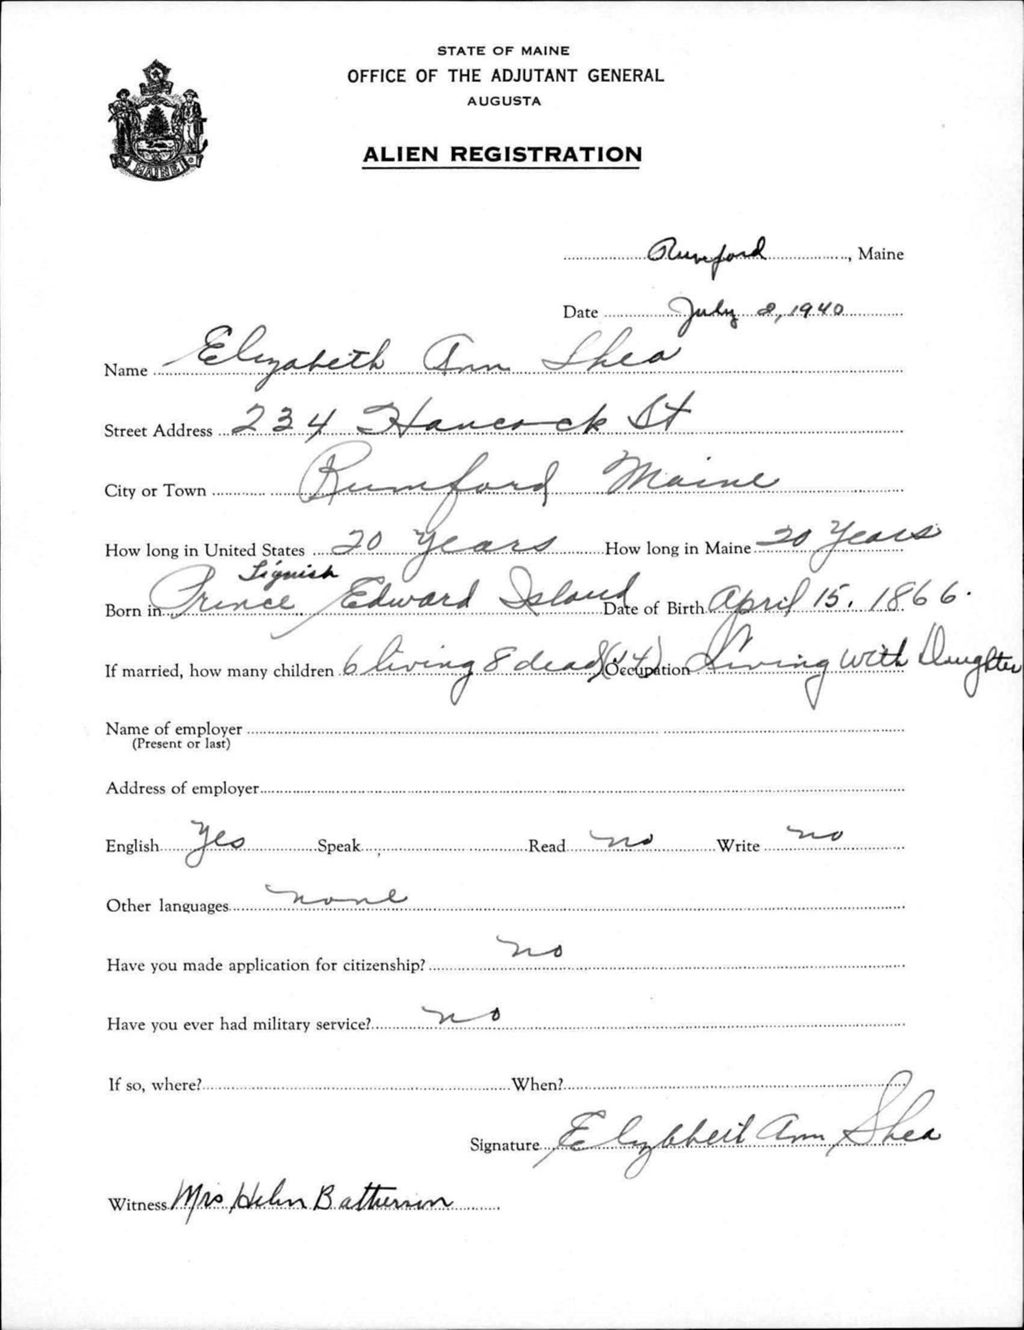 STATE OF MAINE
OFFICE OF THE ADJUTANT GENERAL
AUGUSTA
ALIEN REGISTRATION
MAINE
Rumford, Maine
Date July 2, 1940
Name Elizabeth Ann Shea
Street Address 234 Hancock St
City or Town Rumford Maine
How long in United States 20 years How long in Maine 20 Years
Tignish
Born in Prince Edward Island Date of Birth April 15, 1866.
If married, how many children 6 living 8 dead (14) Occupation Living with Daughter
Name of employer
(Present or last)
Address of employer
English Yes Speak Read no Write no
Other languages none
Have you made application for citizenship? no
Have you ever had military service? no
If so, where? When?
Signature Elizabeth Ann Shea
Witness Mrs Helen Batherson